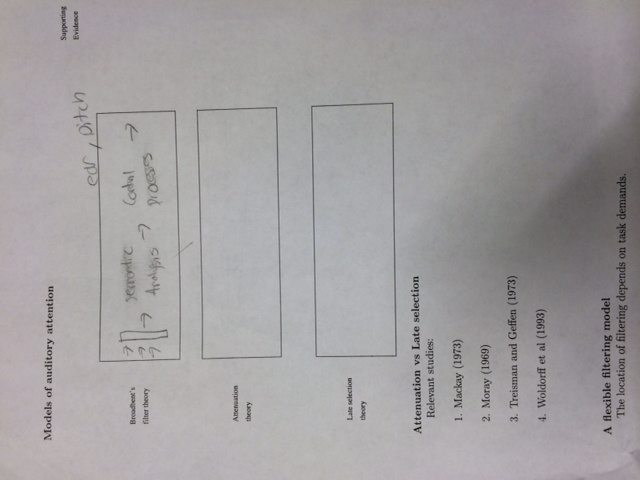 Models of auditory attention
Supporting
Evidence
ear, Pitch
Broadbent's
filter theory
semantic
Analysis
Control
Processes
Attenuation
theory
Late selection
theory
Attenuation vs Late selection
Relevant studies:
1. Mackay (1973)
2. Moray (1969)
3. Treisman and Geffen (1973)
4. Woldorff et al (1993)
A flexible filtering model
The location of filtering depends on task demands.